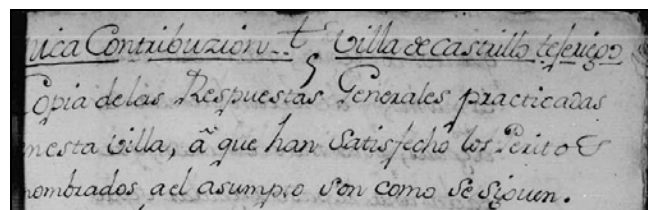 nica Contribuzion.. t Villa de Castrillo tejeriego
Copia de las Respuestas Generales practicadas
en esta Villa, â que han Satisfecho los Peritos
nombrados a el asumpto son como se siguen.